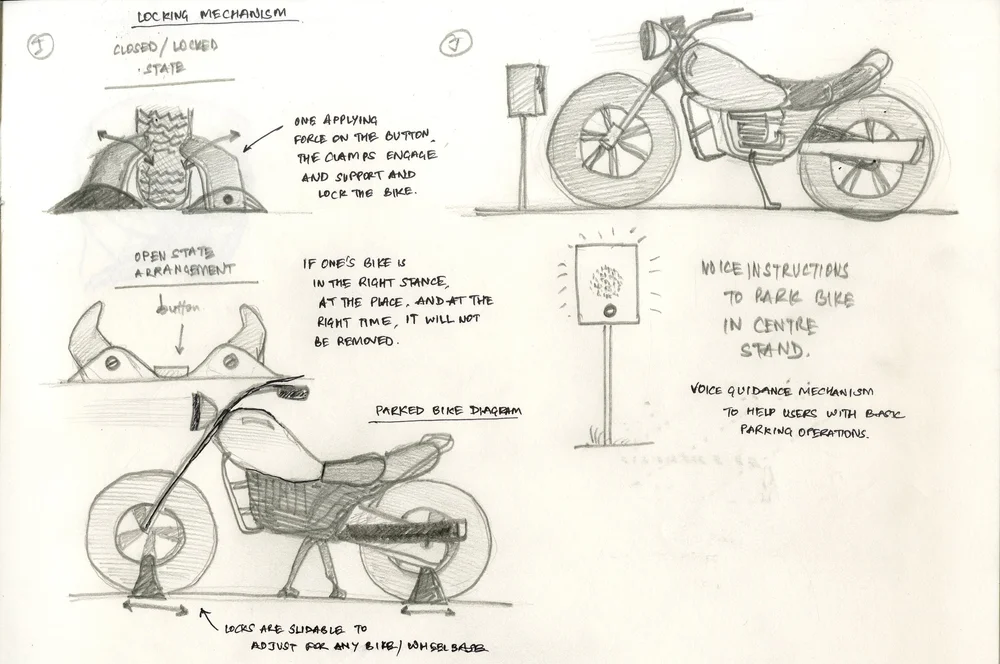 LOCKING MECHANISM
CLOSED/LOCKED
STATE
ONE APPLYING
FORCE ON THE BUTTON,
THE CLAMPS ENGAGE
AND SUPPORT AND
LOCK THE BIKE.
OPEN STATE
ARRANGEMENT
button
IF ONE'S BIKE IS
IN THE RIGHT STANCE,
AT THE PLACE, AND AT THE
RIGHT TIME, IT WILL NOT
BE REMOVED.
PARKED BIKE DIAGRAM
LOCKS ARE SLIDABLE TO
ADJUST FOR ANY BIKE/WHEELBASE
VOICE INSTRUCTIONS
TO PARK BIKE
IN CENTRE
STAND.
VOICE GUIDANCE MECHANISM
TO HELP USERS WITH BASIC
PARKING OPERATIONS.